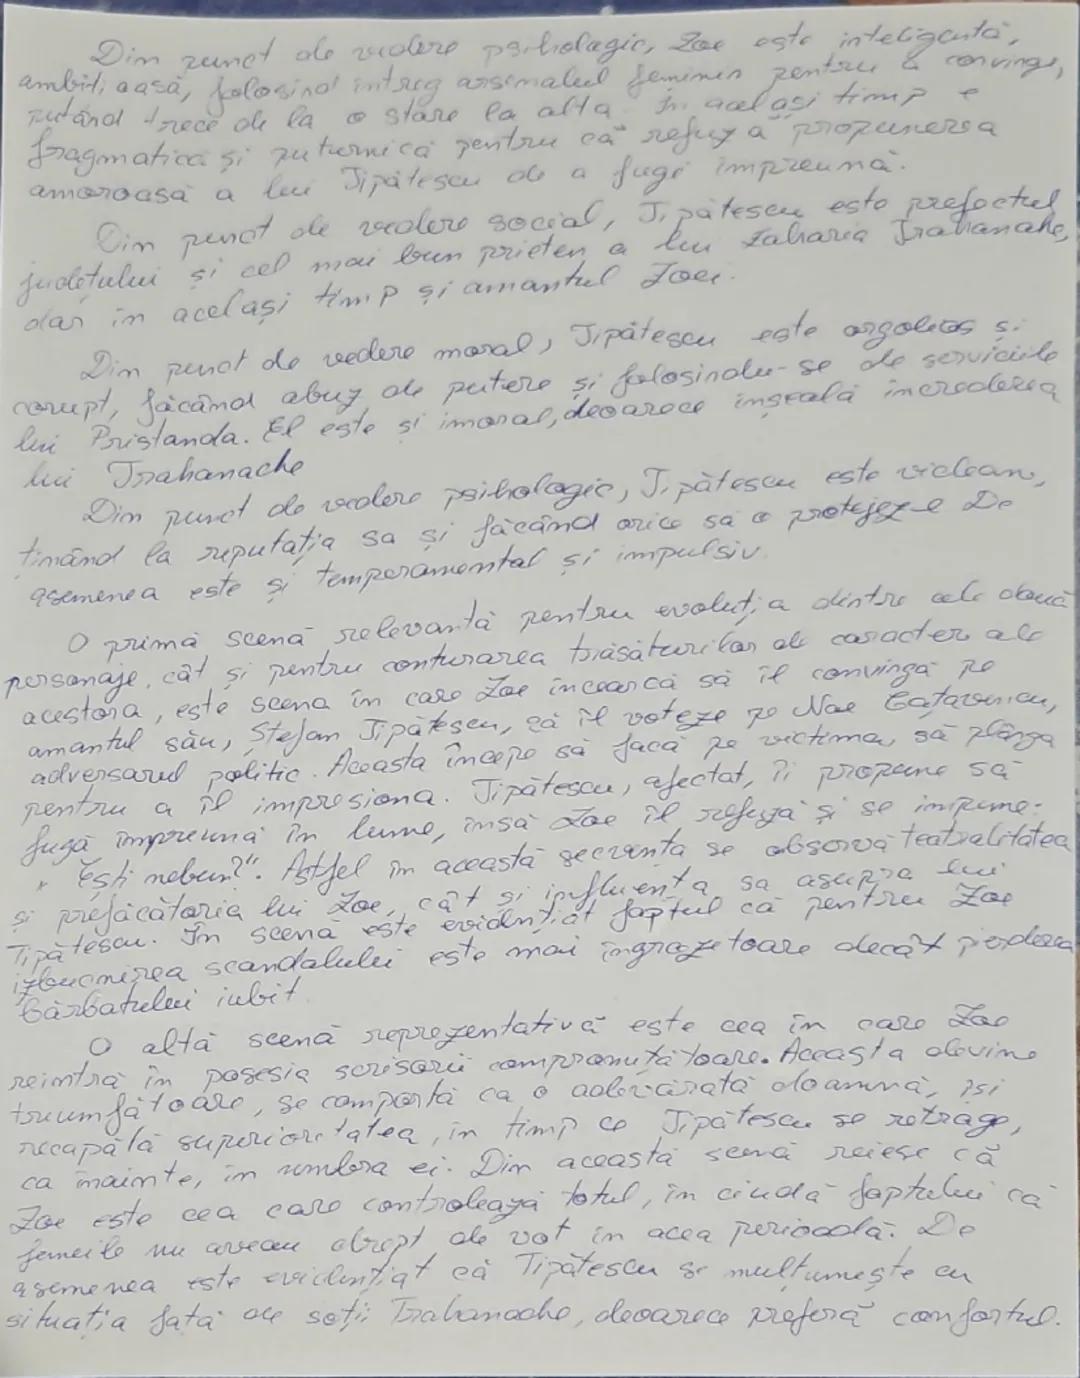 Din punct de vedere psihologic, Zoe este inteligentă,
ambițioasă, folosind întreg arsenalul feminin pentru a convinge,
putând trece de la o stare la alta. În același timp e
fragmatică și puternică pentru că refuză propunerea
amoroasă a lui Tipătescu de a fugi împreună.
Din punct de vedere social, Tipătescu este prefectul
județului și cel mai bun prieten a lui Zaharia Trahanache,
dar în același timp și amantul Zoei.
Din punct de vedere moral, Tipătescu este orgolios și
corupt, făcând abuz de putere și folosindu-se de serviciile
lui Pristanda. El este și imoral, deoarece înșeală încrederea
lui Trahanache
Din punct de vedere psihologic, Tipătescu este viclean,
ținând la reputația sa și făcând orice să o protejeze De
asemenea este și temperamental și impulsiv.
O primă scenă relevantă pentru evoluția dintre cele două
personaje, cât și pentru conturarea trăsăturilor de caracter ale
acestora, este scena în care Zoe încearcă să îl convingă pe
amantul său, Ștefan Tipătescu, să îl voteze pe Nae Cațavencu,
adversarul politic. Aceasta începe să facă pe victima, să plângă
pentru a îl impresiona. Tipătescu, afectat, îi propune să
fugă împreună în lume, însă Zoe îl refuză și se impune:
"Ești nebun?". Astfel în această secvență se observă teatralitatea
și prefăcătoria lui Zoe, cât și influența sa asupra lui
Tipătescu. În scenă este evidențiat faptul că pentru Zoe
izbucnirea scandalului este mai îngrozitoare decât pierderea
bărbatului iubit.
O altă scenă reprezentativă este cea în care Zoe
reintră în posesia scrisorii compromițătoare. Aceasta devine
triumfătoare, se comportă ca o adevărată doamnă, își
recapătă superioritatea, în timp ce Tipătescu se retrage,
ca înainte, în umbra ei. Din această scenă reiese că
Zoe este cea care controlează totul, în ciuda faptului că
femeile nu aveau drept de vot în acea perioadă. De
asemenea este evidențiat că Tipătescu se mulțumește cu
situația față de soții Trahanache, deoarece preferă confortul.